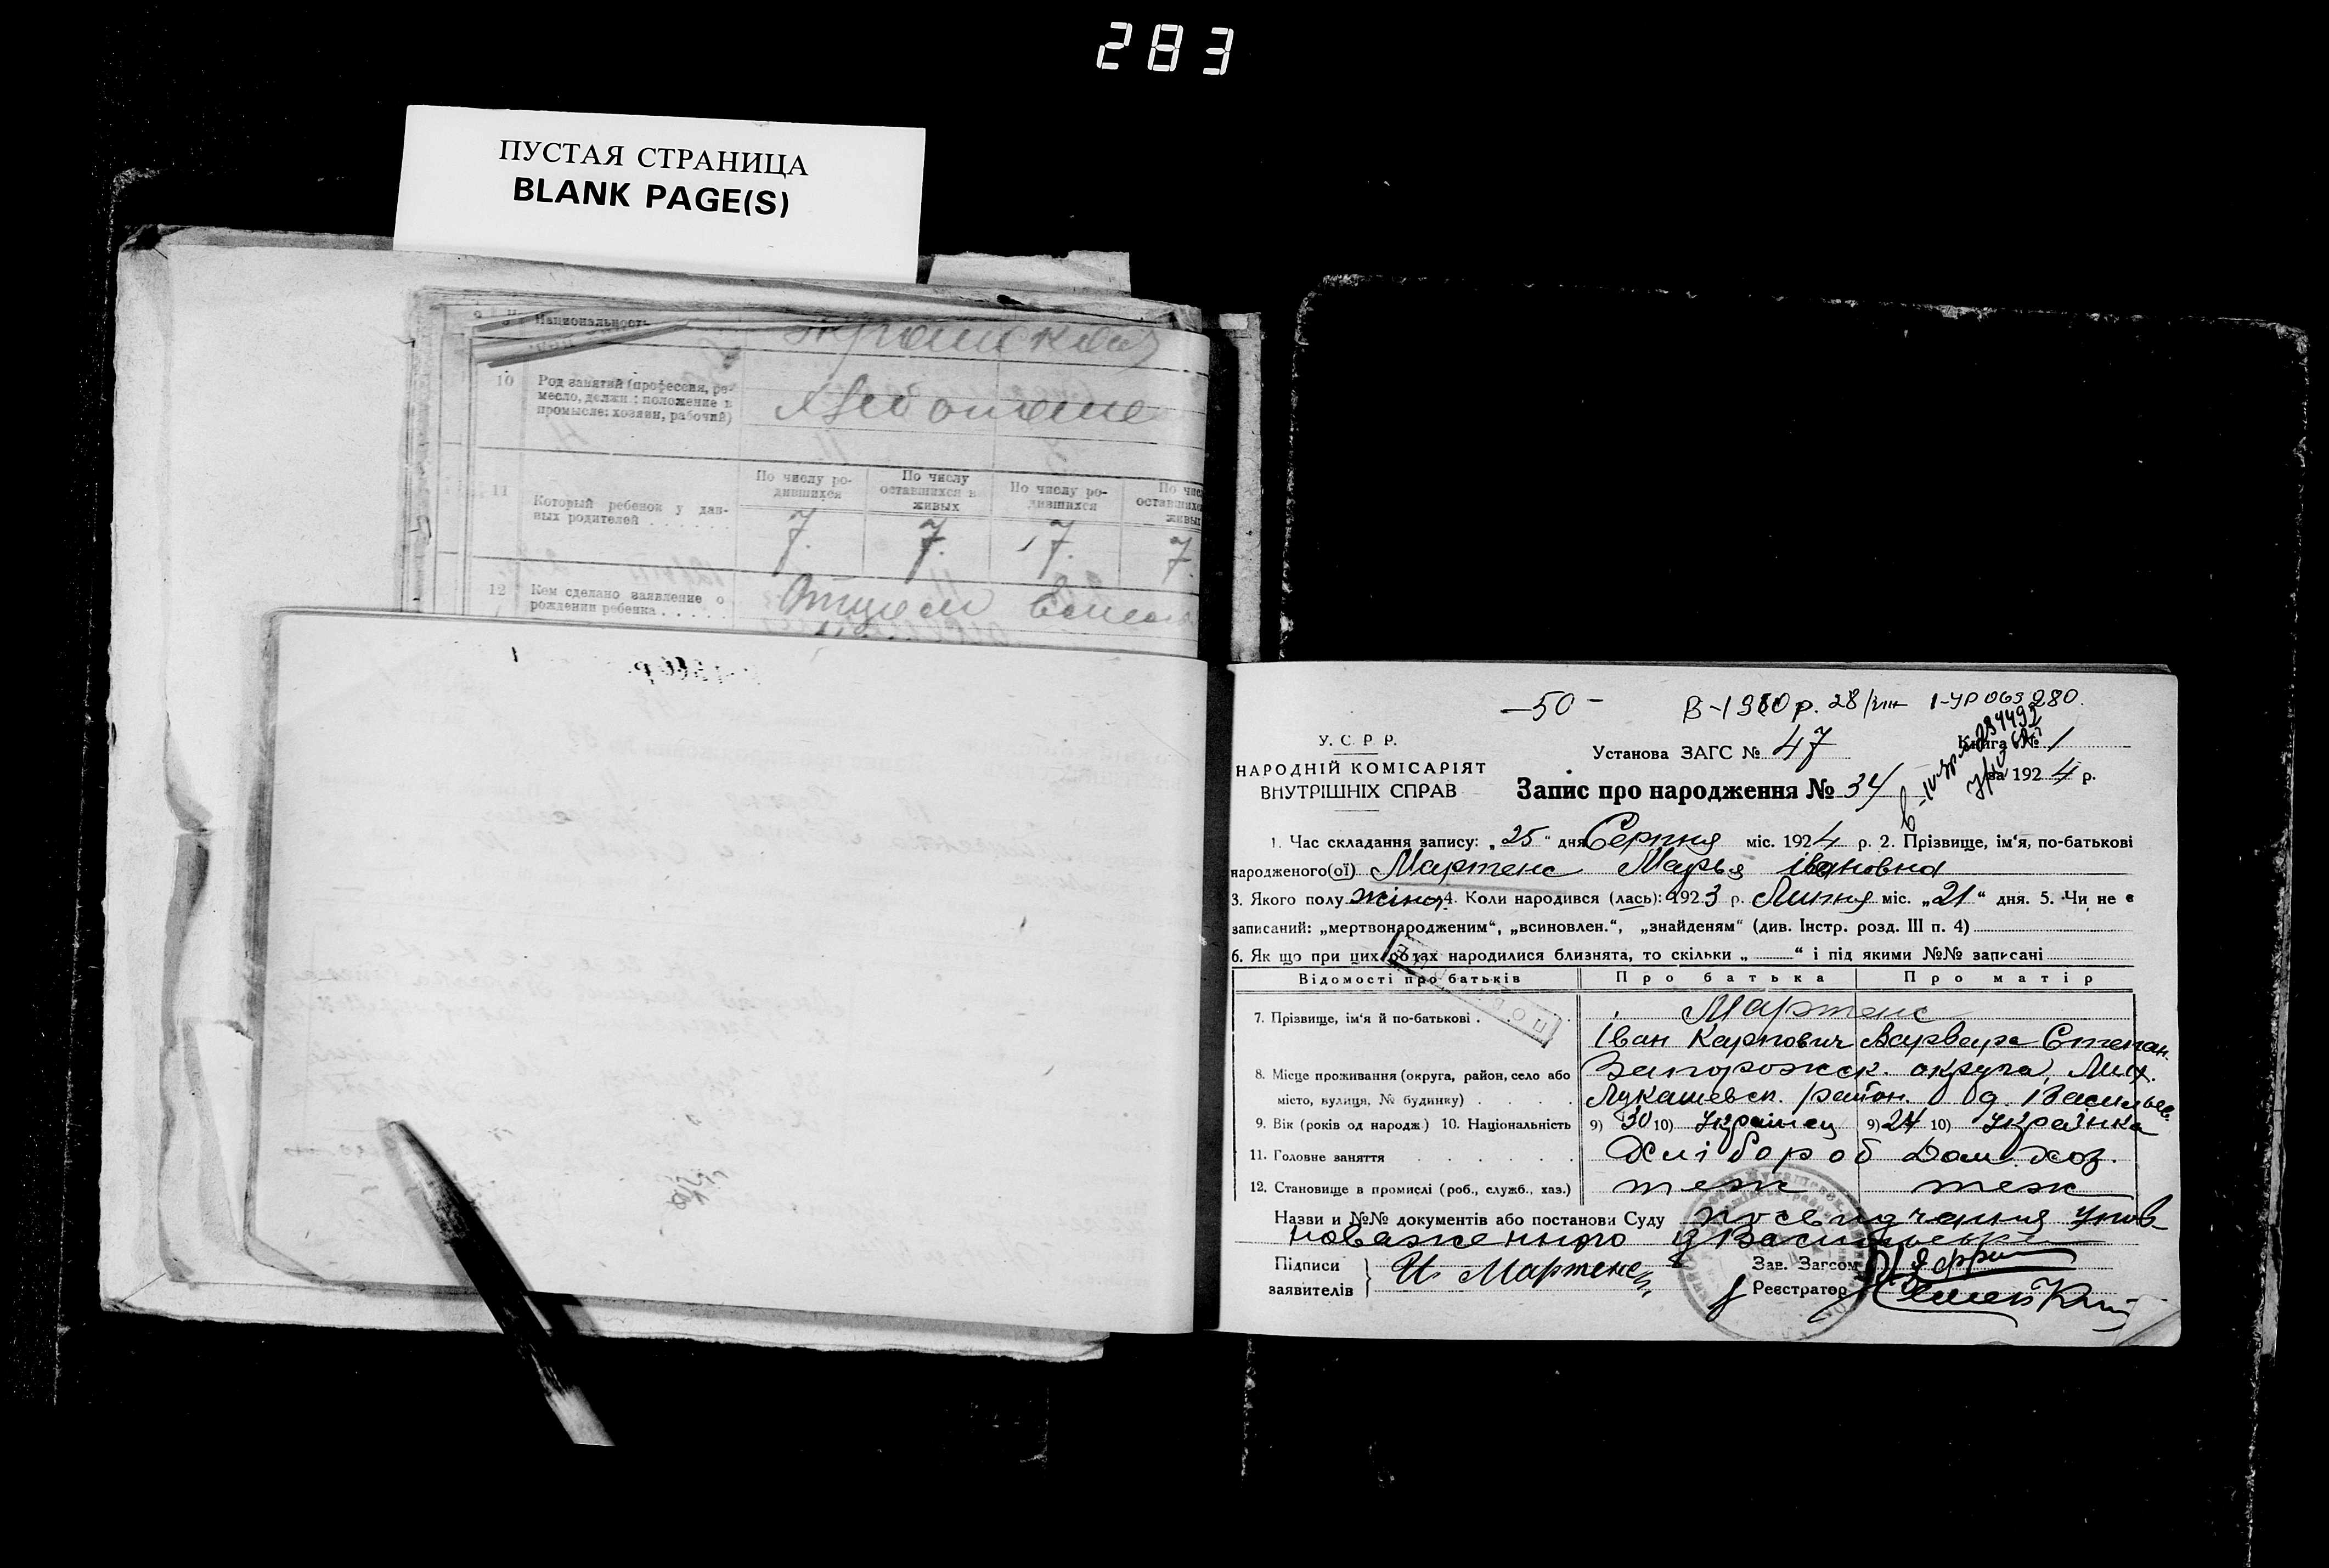 283
ПУСТАЯ СТРАНИЦА
BLANK PAGE(S)
Национальность
10 Род занятий (профессия, ре-
месло, должн.: положение в
промысле: хозяин, рабочий)
По числу ро- По числу По числу ро-
дившихся оставшихся в дившихся
живых
11 Который ребенок у дан-
ных родителей
7. 7. 7. 7.
12 Кем сделано заявление о
рождении ребенка
Отцом
—50— В-1980 р. 28/VIII 1-УР 063280.
У. С. Р. Р.
НАРОДНІЙ КОМІСАРІЯТ
ВНУТРІШНІХ СПРАВ
Установа ЗАГС № 47 Книга № 1
за 1924 р.
Запис про народження № 34
1. Час складання запису: „25“ дня Серпня міс. 1924 р. 2. Прізвище, ім'я, по-батькові
народженого(ої) Мартенс Марья Івановна
3. Якого полу жіноч 4. Коли народився (лась): 1923 р. Липня міс. „21“ дня. 5. Чи не є
записаний: „мертвонародженим“, „всиновлен.“, „знайденям“ (див. Інстр. розд. III п. 4)
6. Як що при цих родах народилися близнята, то скільки „ “ і під якими №№ записані
Відомості про батьків Про батька Про матір
7. Прізвище, ім'я й по-батькові Мартенс
Іван Карпович Варвара Степан.
8. Місце проживання (округа, район, село або Запорожск. округа, Мих.
місто, вулиця, № будинку) Лукашевск. район. д. Васильев.
9. Вік (років од народж.) 10. Національність 9) 30 10) Українец 9) 24 10) Українка
11. Головне заняття Хлібороб Дом. хоз.
12. Становище в промислі (роб., служб., хаз.) теж теж
Назви и №№ документів або постанови Суду посвідчення упов
новаженного
Підписи
заявителів И. Мартенс
Зав. Загсом
Реєстратор